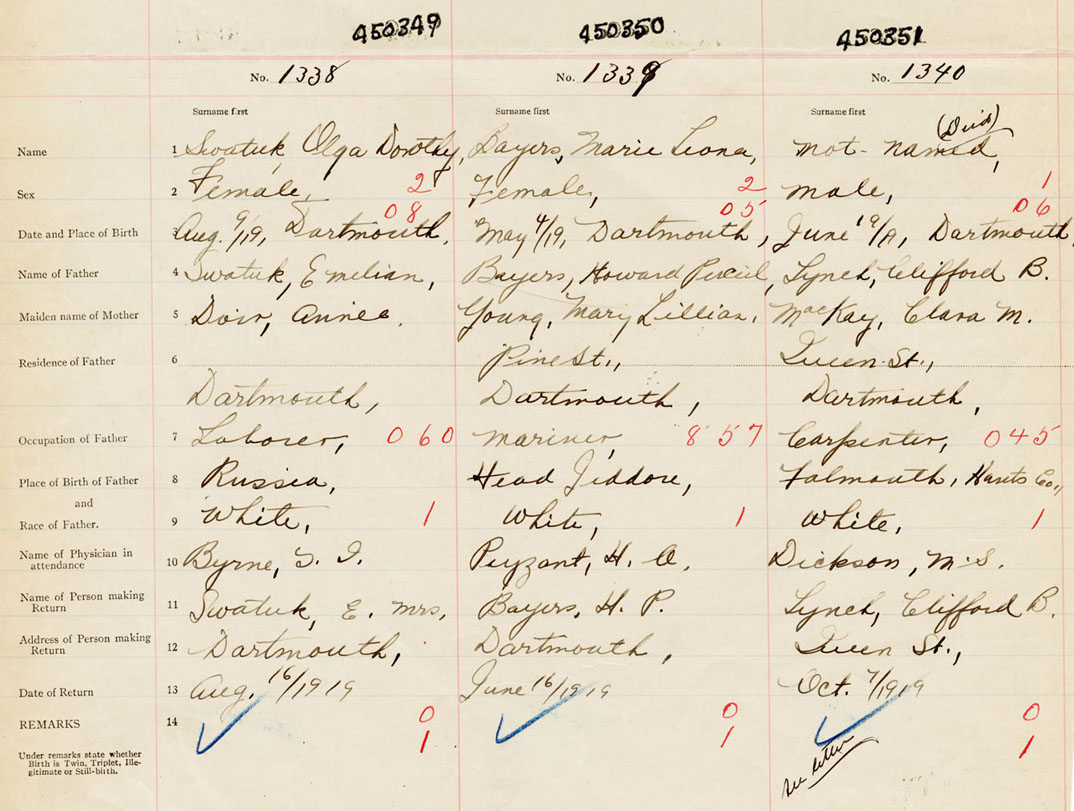 450349 450350 450351
No. 1338 No. 1339 No. 1340
Surname first Surname first Surname first
(Died)
Name 1 Swatuk, Olga Dorothy, Bayers, Marie Leona, not named,
Sex 2 Female, 2 Female, 2 male, 1
08 05 06
Date and Place of Birth 3 Aug. 9/19, Dartmouth, May 4/19, Dartmouth, June 19/19, Dartmouth
Name of Father 4 Swatuk, Emelian, Bayers, Howard Lynch, Clifford B.
Maiden name of Mother 5 Annie. Young, Mary Lillian, MacKay, Clara M.
Residence of Father 6 Pine St., Queen St.,
Dartmouth, Dartmouth, Dartmouth,
Occupation of Father 7 Laborer, 060 mariner, 857 Carpenter, 045
Place of Birth of Father 8 Russia, Head Jeddore, Falmouth, Hants Co.,
and
Race of Father. 9 White, 1 White, 1 White, 1
Name of Physician in
attendance 10 Byrne, Payzant, H. A. Dickson, M. S.
Name of Person making
Return 11 Swatuk, E. Mrs. Bayers, H. P. Lynch, Clifford B.
Address of Person making
Return 12 Dartmouth, Dartmouth, Queen St.,
Date of Return 13 Aug. 16/1919 June 16/1919 Oct. 7/1919
REMARKS 14 0 0 0
1 1 1
Under remarks state whether
Birth is Twin, Triplet, Ille-
gitimate or Still-birth.
see letter